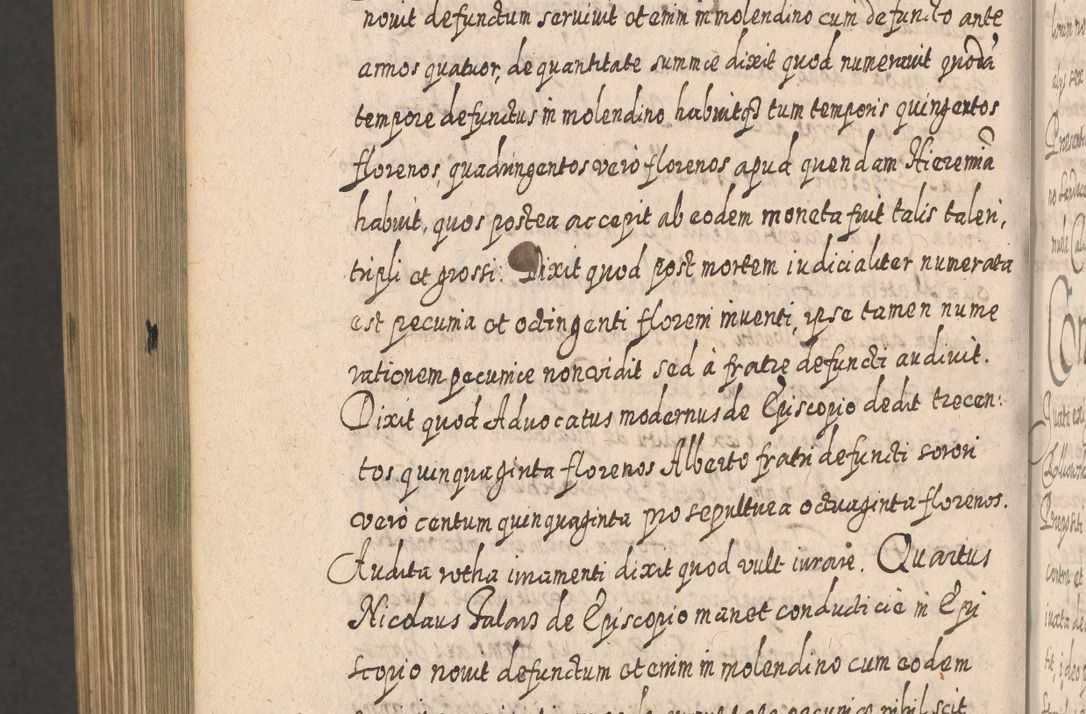 novit defunctum servivit et enim in molendino cum defuncto ante
annos quatuor, de quantitate summæ dixit quod numeravit quodā
tempore defunctus in molendino habuitq3 tum temporis quingentos
florenos, quadringentos vero florenos apud quendam Hieremiā
habuit, quos postea accepit ab eodem moneta fuit talis taleri,
tripli et grossi. Dixit quod post mortem iudicialiter numerata
est pecunia et octingenti floreni inventi, ipse tamen nume
rationem pecuniæ non vidit sed à fratre defuncti audivit.
Dixit quod Advocatus modernus de Episcopio dedit trecen:
tos quinquaginta florenos Alberto fratri defuncti sorori
vero centum quinquaginta pro sepultura octuaginta florenos.
Audita rotha iuramenti dixit quod vult iurare. Quartus
Nicolaus de Episcopio manet conductitie in Epi
scopio novit defunctum et enim in molendino cum eodem
pecuniæ nihil scit